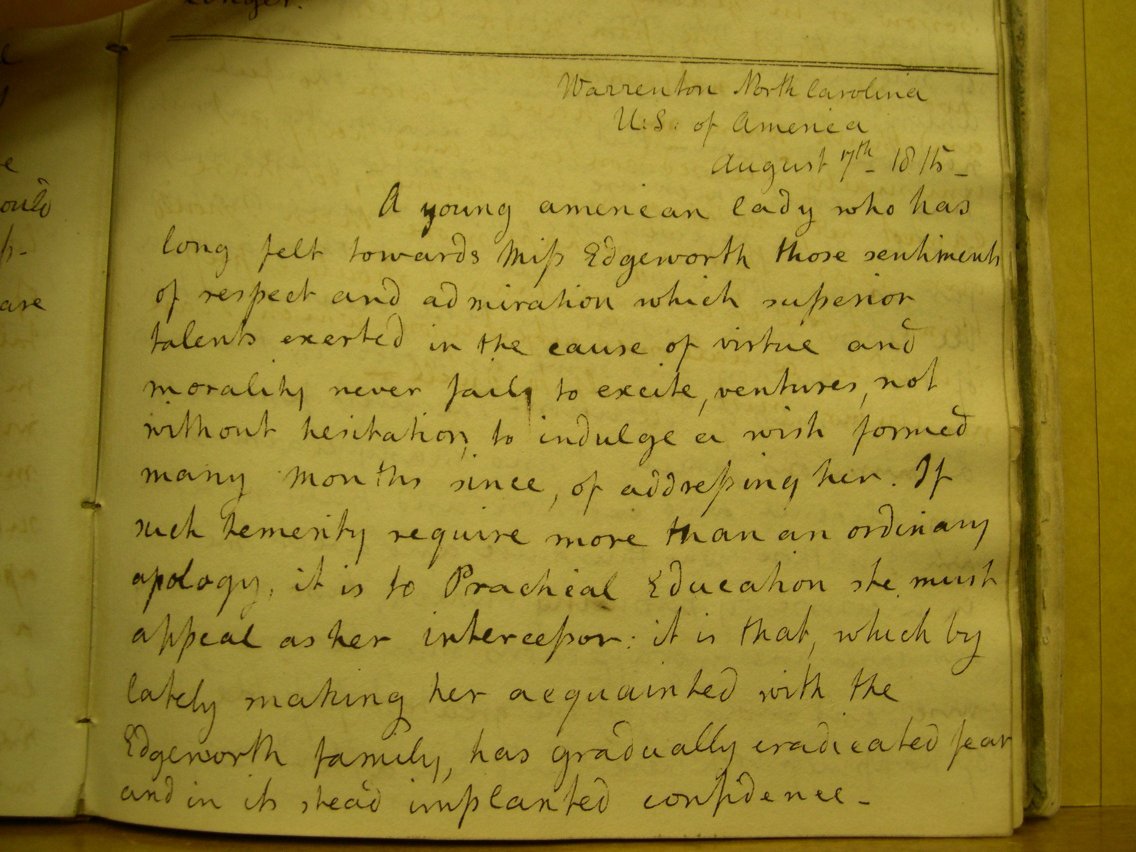 longer.
Warrenton North Carolina
U:S. of America
August 7th - 1815 -
A young american lady who has
long felt towards Miss Edgeworth those sentiments
of respect and admiration which superior
talents exerted in the cause of virtue and
morality never fail to excite, ventures, not
without hesitation, to indulge a wish formed
many months since, of addressing her. If
such temerity require more than an ordinary
apology, it is to Practical Education she must
appeal as her intercessor: it is that, which by
lately making her acquainted with the
Edgeworth family, has gradually eradicated fear
and in its stead implanted confidence -